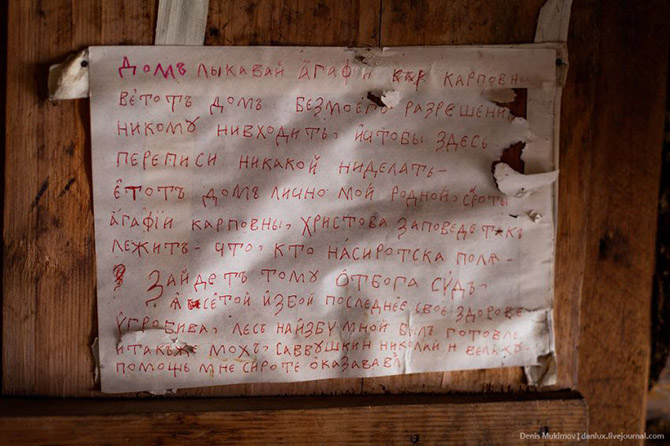 Домъ лыкавай а҆гафїи карповны
ве҆тотъ домъ безмоего разрешени
никому нивходить, и҆чтобы здесь
переписи никакой ниделать-
е҆тотъ домъ лично мой родной, сироты
а҆гафїи карповны, христова заповедь такъ
лежитъ- что, кто на́сиротска поля-
? Зайдетъ тому ѿбога су́дъ,
се́той и҆збой последнее своё здоровье
угробива, лесъ наи҆збу мной былъ готовле
и҆такъже мохъ, саввушкин николай н
помощь мне сироте ѡказавав